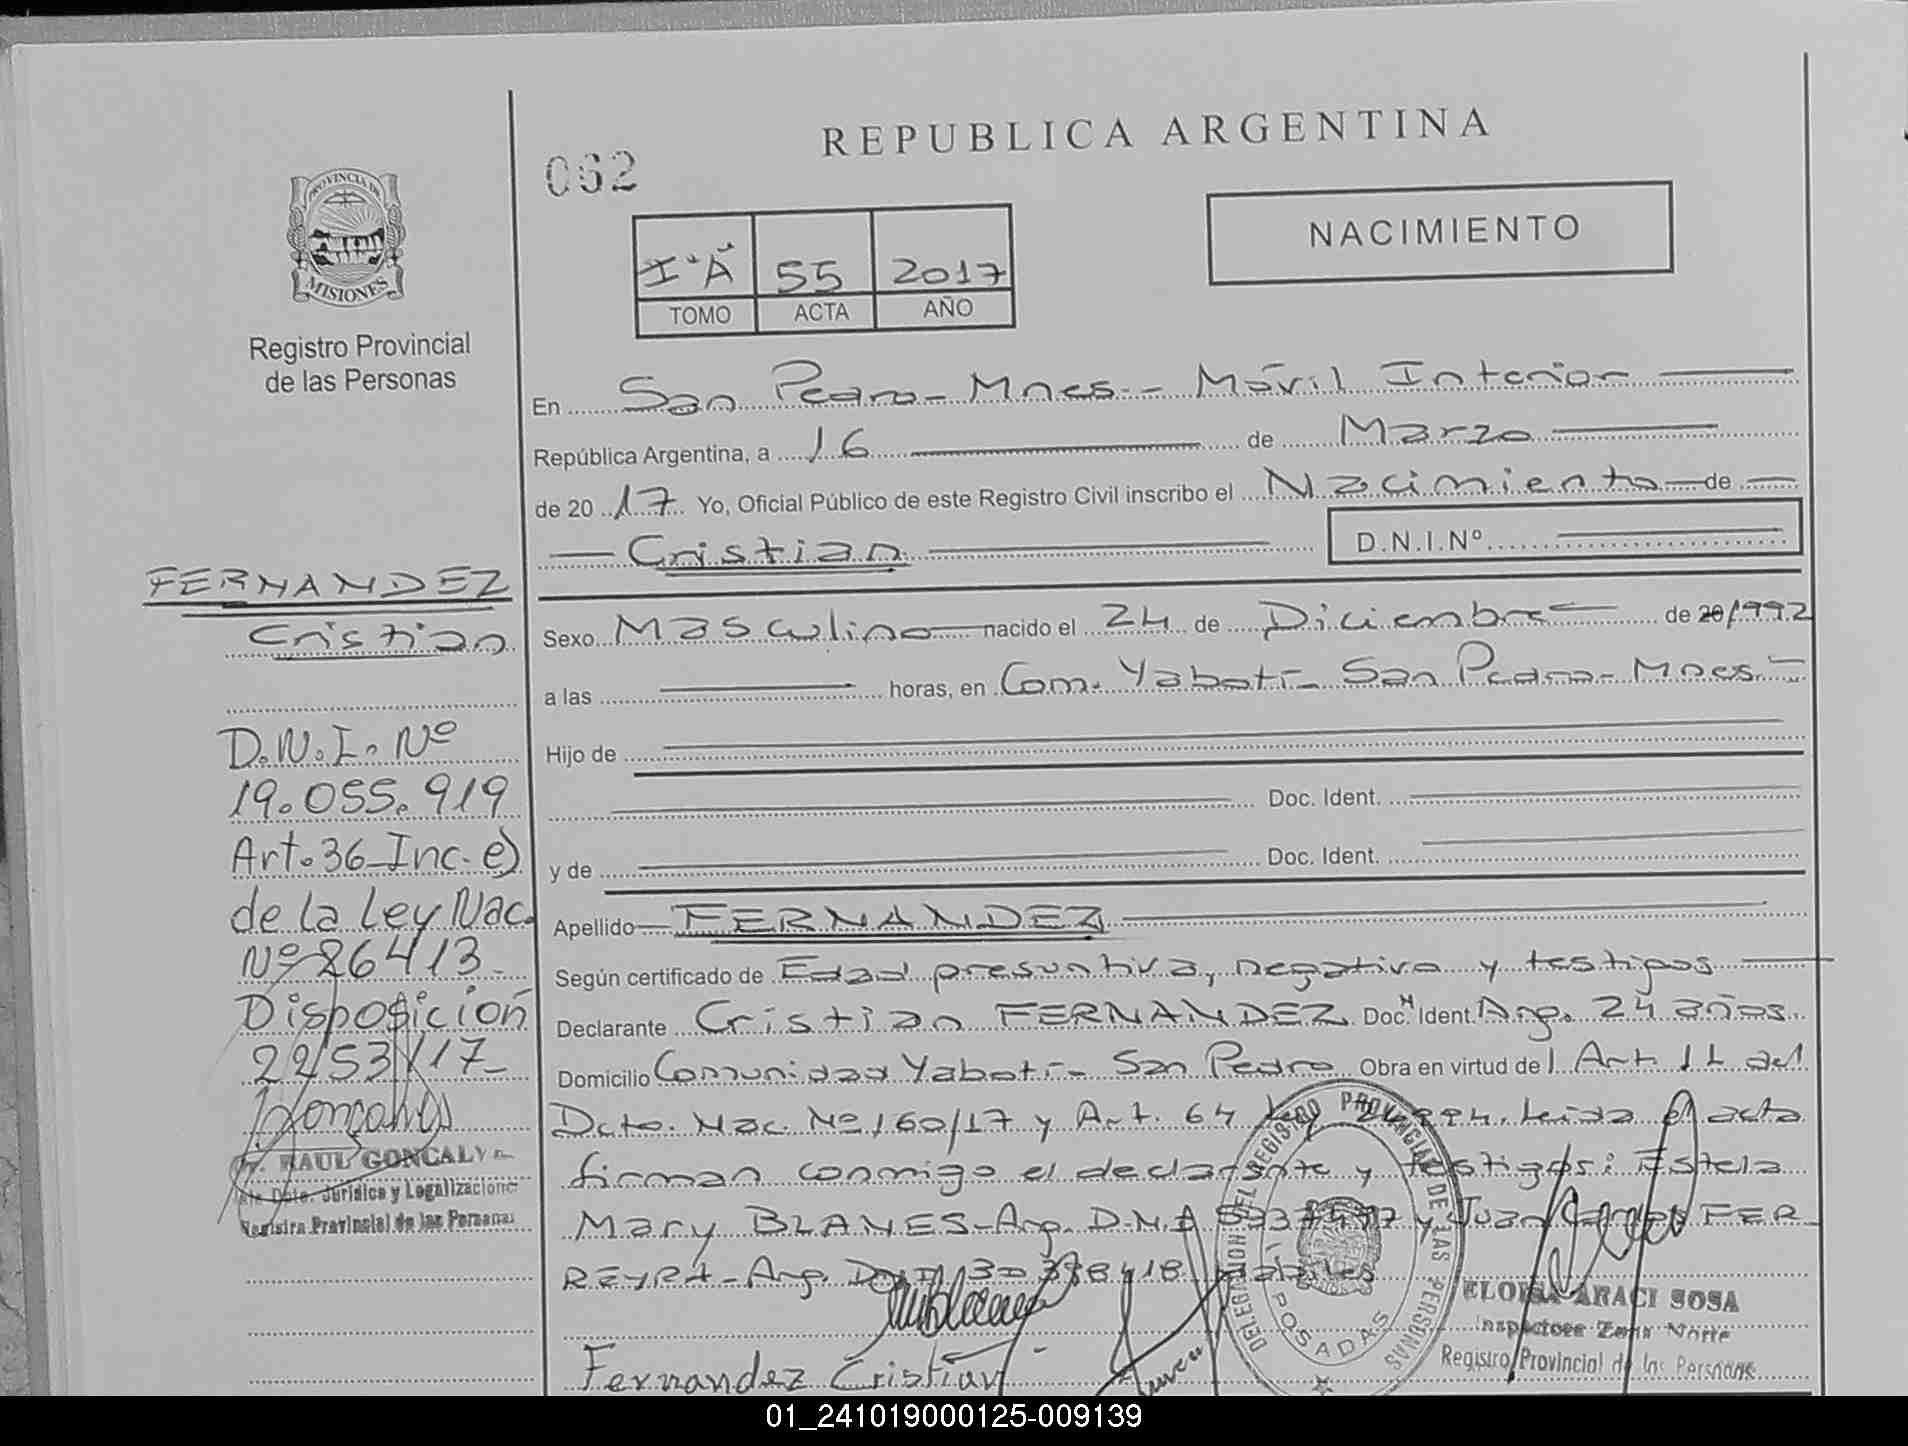 REPUBLICA ARGENTINA
062
NACIMIENTO
I°"A" 55 2017
TOMO ACTA AÑO
PROVINCIA DE
MISIONES
Registro Provincial
de las Personas
En San Pedro - Mnes. - Móvil Interior
República Argentina, a 16 de Marzo
de 20 17 Yo, Oficial Público de este Registro Civil inscribo el Nacimiento de
Cristian D.N.I.Nº
FERNANDEZ
Cristian
D.N.I. Nº
19.055.919
Art. 36 Inc. e)
de la Ley Nac.
Nº 26413
Disposicion
2253/17
RAUL GONCALV
Jurídica y Legalizacione
Registro Provincial de las Personas
Sexo Masculino nacido el 24 de Diciembre de 20 1992
a las horas, en Com. Yabotí - San Pedro - Mnes.
Hijo de
Doc. Ident.
y de Doc. Ident.
Apellido FERNANDEZ
Según certificado de Edad presuntiva, negativo y testigos
Declarante Cristian FERNANDEZ Doc. Ident. Arg. 24 años
Domicilio Comunidad Yabotí - San Pedro Obra en virtud de Art. 11 del
Dcto. Nac. Nº 160/17 y Art. 64 Ley Leida el acta
firman conmigo el declarante y testigos: Estela
Mary BLANES - Arg. D.N.I y Juan FER
REYRA - Arg. DNI
Fernandez Cristian
DELEGACION DEL REGISTRO PROVINCIAL DE LAS PERSONAS
POSADAS
ELOISA ARACI SOSA
Inspectora Zona Norte
Registro Provincial de las Personas
01_241019000125-009139